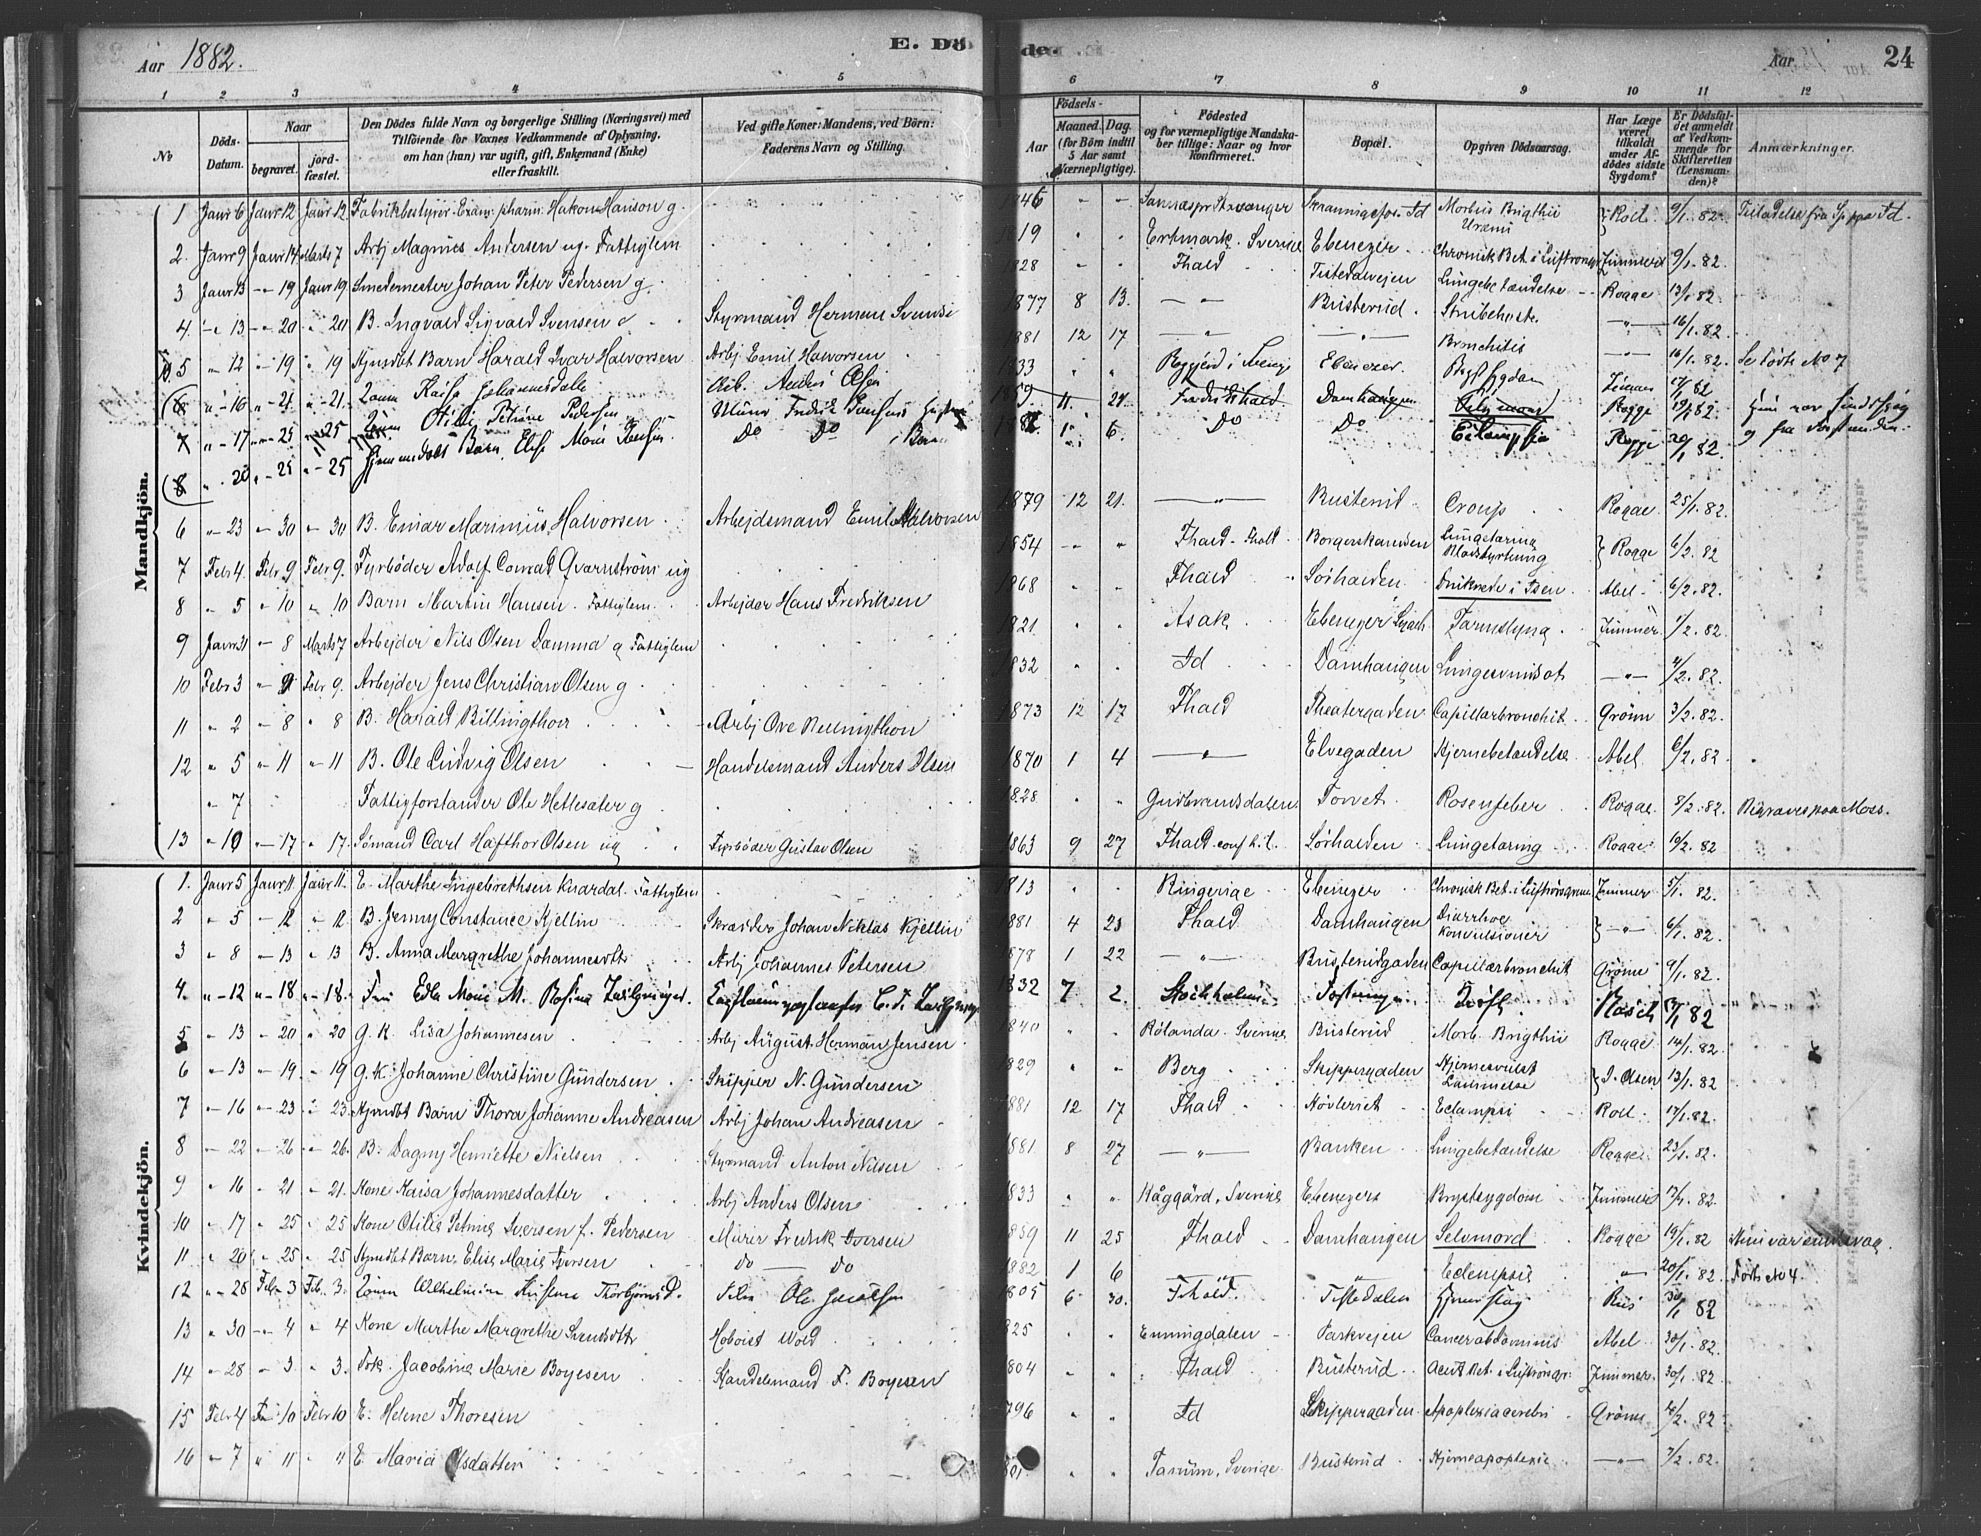 Aar 1882.
E. Döde.
Aar
24
1 2 3 4 5 6 7 8 9 10 11 12
No
Döds-Datum.
Naar
begravet.
jordfæstet.
Den Dödes fulde Navn og borgerlige Stilling (Næringsvei) med
Tilföiende for Voxnes Vedkommende af Oplysning,
om han (hun) var ugift, gift, Enkemand (Enke)
eller fraskilt.
Ved gifte Koner: Mandens, ved Börn:
Faderens Navn og Stilling.
Aar
Födsels-
Maaned. Dag.
(for Börn indtil
5 Aar samt
Værnepligtige).
Födested
og for værnepligtige Mandskaber tillige: Naar og hvor
konfirmeret.
Bopæl.
Opgiven Dödsaarsag.
Har Læge
været
tilkaldt
under Afdödes sidste
Sygdom?
Er Dödsfaldet anmeldt
af Vedkommende for
Skifteretten
(Lensmanden)?
Anmærkninger.
Mandkjön.
1 Janr 6 Janr 12 Janr 12 Fabrikbestyrer Exam. pharm. Hakon Hanson g. 1846 Stavanger Skanningsfos Id Morbus Brigthii Uræmi Rod. 9/1. 82.
2. Janr 9 Janr 14 Marts 7 Arbj Magnus Andersen ug. Fattiglem 1819 Sverige Ebenezer Chronisk Bet. i Luftrörsgr Zimmer 9/1. 82.
3 Janr 13 " 19 Janr 19 Smedemester Johan Peter Pedersen g. 1828 Fhald Tistedalveien Lungebetændelse Rogge 13/1. 82.
4. " 13 " 20 " 20 B. Ingvald Sigvald Svensen Styrmand Herman Svensen 1877 8 13. Busterud Strubehoste 16/1. 82.
5 " 12 " 19 " 19 Hjmdbt Barn Harald Ivar Halvorsen Arbj. Emil Halvorsen 1881 12 17 Bronchitis 16/1. 82. Se Födte No 7
6 " 16 " 21 " 21. Kone Kaisa Johannesdatter Arb. Anders Olsen 1833 Sverige Ebenezer. Brystsygdom Zimmer 17/1 82
7 " 17 " 25 " 25 Kone Otilie Petrine Pedersen Murer Fredrik Iversens Hustru 1859 11. 25 Fredrikshald Damhaugen Selvmord Rogge 19/1 82. Hun var sindssvag
8 " 20 " 25 " 25 Hjemmedøbt Barn, Elise Marie Iversen. Do Do Barn 1882. 1 6. Do Do Eclampsia Rogge 20/1 82.
6 " 23 " 30 " 30 B. Einar Marinius Halvorsen Arbejdsmand Emil Halvorsen 1879 12 21. Busterud Croup Rogge 25/1. 82.
7 Febr 4. Febr 9. Febr 9. Fyrböder Adolf Conrad Qvarnström ug 1854 Fhald Borgerskansen Lungetæring Blodstyrtning Rogge 6/2. 82
8 " 5 " 10 " 10 Barn Martin Hansen. Fattiglem Arbejder Hans Fredriksen 1868 Fhald Sörhalden Druknede i Tisen Abel 6/2. 82.
9 Janr 31 " 8 Marts 7 Arbejder Nils Olsen Damma g Fattiglem 1821 Asak Ebenezer Tarmslyng Zimmer 1/2. 82.
10 Febr 3 " 9 Febr 9. Arbejder Jens Christian Olsen g 1832 Id Damhaugen Lungesvindsot 4/2. 82.
11 " 2 " 8 " 8 B. Harald Billingthon Arbj Ove Billingthon 1873 12 17 Fhald Theatergaden Capillarbronchit Grönn 3/2. 82.
12 " 5 " 11 " 11 B. Ole Ludvig Olsen Handelsmand Anders Olsen 1870 1 4 Elvegaden Hjernebetændelse Abel 6/2. 82.
" 7 Fattigforstander Ole Hettesater g 1828 Gudbrandsdalen Torvet Rosenfeber Rogge 8/2. 82. Begraves paa Moss.
13 " 10 " 17 " 17. Sömand Carl Hafthor Olsen ug Fyrböder Gustav Olsen 1863 9 27 Fhald Sörhalden Lungetæring Rogge 10/2. 82
Kvindekjön.
1. Janr 5 Janr 11. Janr 11. E. Marthe Ingebrethsen Knardal. Fattiglem 1813 Ringerige Ebenezer Chronisk Bet. i Luftrörsgrene Zimmer 5/1. 82.
2 " 5 " 12 " 12 B. Jenny Constance Kjellin Skrædder Johan Niklas Kjellin 1881 4 23 Fhald Damhaugen Diarrhoe Konvulsioner 6/1. 82.
3 " 8 " 13 " 13 B. Anna Margrethe Johannesdtr Arbj Johannes Petersen 1878 1 22 Busterudgaden Capillarbronchit Grönn 9/1. 82.
4. " 12 " 18 " 18. Fru Edla Marie M. Rosina 1832 7 2. Stockholm Rosch 82
5 " 13 " 20 " 20 g. K. Lisa Johannesen Arbj August Herman Jensen 1840 Rölanda Sverige Busterud Morb. Brigthii Rogge 14/1. 82.
6 " 13 " 19 " 19 g. K. Johanne Christine Gundersen Skipper N. Gundersen 1829 Berg Skippergaden Hjernesvulst Lammelse J. Olsen 13/1. 82
7 " 16 " 23 " 23 Hjmdbt Barn Thora Johanne Andreasen Arbj Johan Andreasen 1881 12 17 Fhald Hovleriet Eclampsi Rod 17/1. 82.
8 " 22 " 26 " 26. B. Dagny Henriette Nielsen Styrmand Anton Nilsen 1881. 8 27 Banken Lungebetændelse Rogge 23/1. 82.
9 " 16 " 21 " 21. Kone Kaisa Johannesdatter Arbj Anders Olsen 1833 Häggärd, Sverige Ebenezer Brystsygdom Zimmer 17/1. 82.
10 " 17 " 25 " 25 Kone Otilie Petrine Iversen f. Pedersen Murer Fredrik Iversen 1859 11 25 Fhald Damhaugen Selvmord Rogge 19/1. 82 Hun var sindssvag.
11 " 20 " 25 " 25 Hjmdbt Barn, Elise Marie Iversen do do 1882 1 6 Eclampsie 20/1. 82. Födte No 4.
12 " 28 Febr 3 Feb. 3. Wilhelmine Ole Jacobsen 1805 6 30. Fhald Tistedalen Riis 30/1 82
13 " 30 " 4 " 4 Kone Marthe Margrethe Svendsdtr Hoboist Wold 1825 Enningdalen Parkveien Cancer abdominis Abel 30/1. 82.
14 " 28 " 3 " 3. Frk. Jacobine Marie Boyesen Handelsmand F. Boyesen 1804 Fhald Busterud Acut Bet. i Luftrörsgr. Zimmer 30/1. 82.
15 Febr 4 Febr 10 Febr 10 E. Helene Thoresen 1796 Id Skippergaden Apoplexia cerebri Grönn 4/2. 82.
16 " 7 " 11 " 11 E. Maria Olsdatter 1801 Tanum, Sverige Busterud Hjerneapoplexie 7/2. 82.